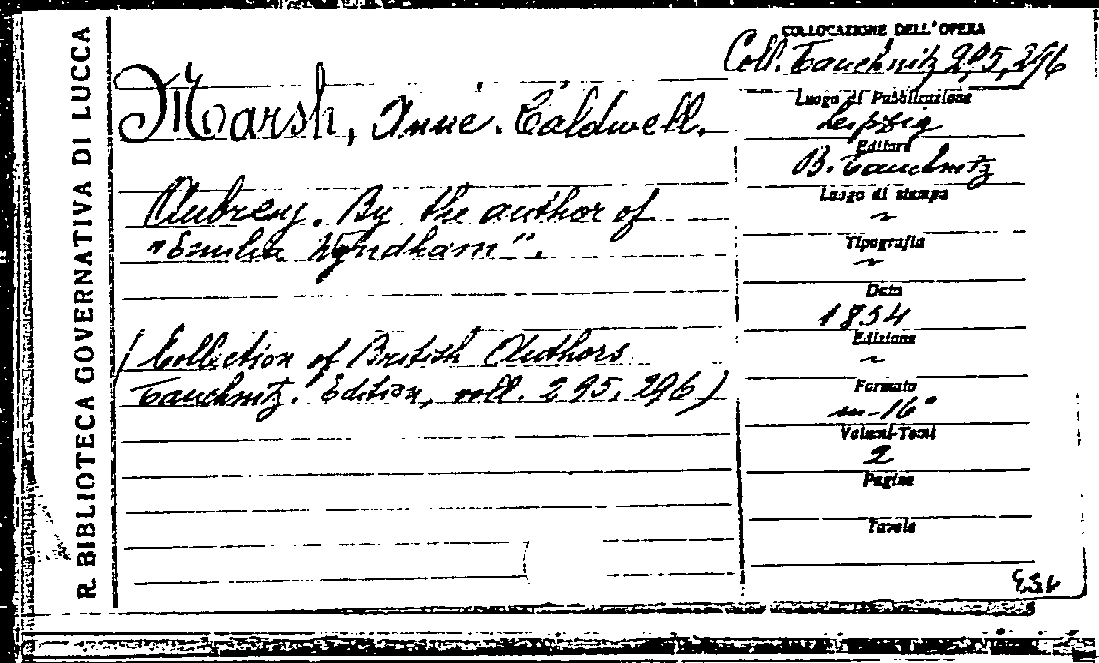 R. BIBLIOTECA GOVERNATIVA DI LUCCA
Marsh, Anne. Caldwell.
Aubrey. By the author of
"Emilia Wyndham".
(Collection of British Authors
Tauchnitz. Edition, voll. 295, 296)
COLLOCAZIONE DELL'OPERA
Coll. Tauchnitz 295, 296
Luogo di Pubblicazione
Leipzig
Editore
B. Tauchnitz
Luogo di stampa
~
Tipografia
~
Data
1854
Edizione
~
Formato
in-16°
Volumi-Tomi
2
Pagine
Tavole